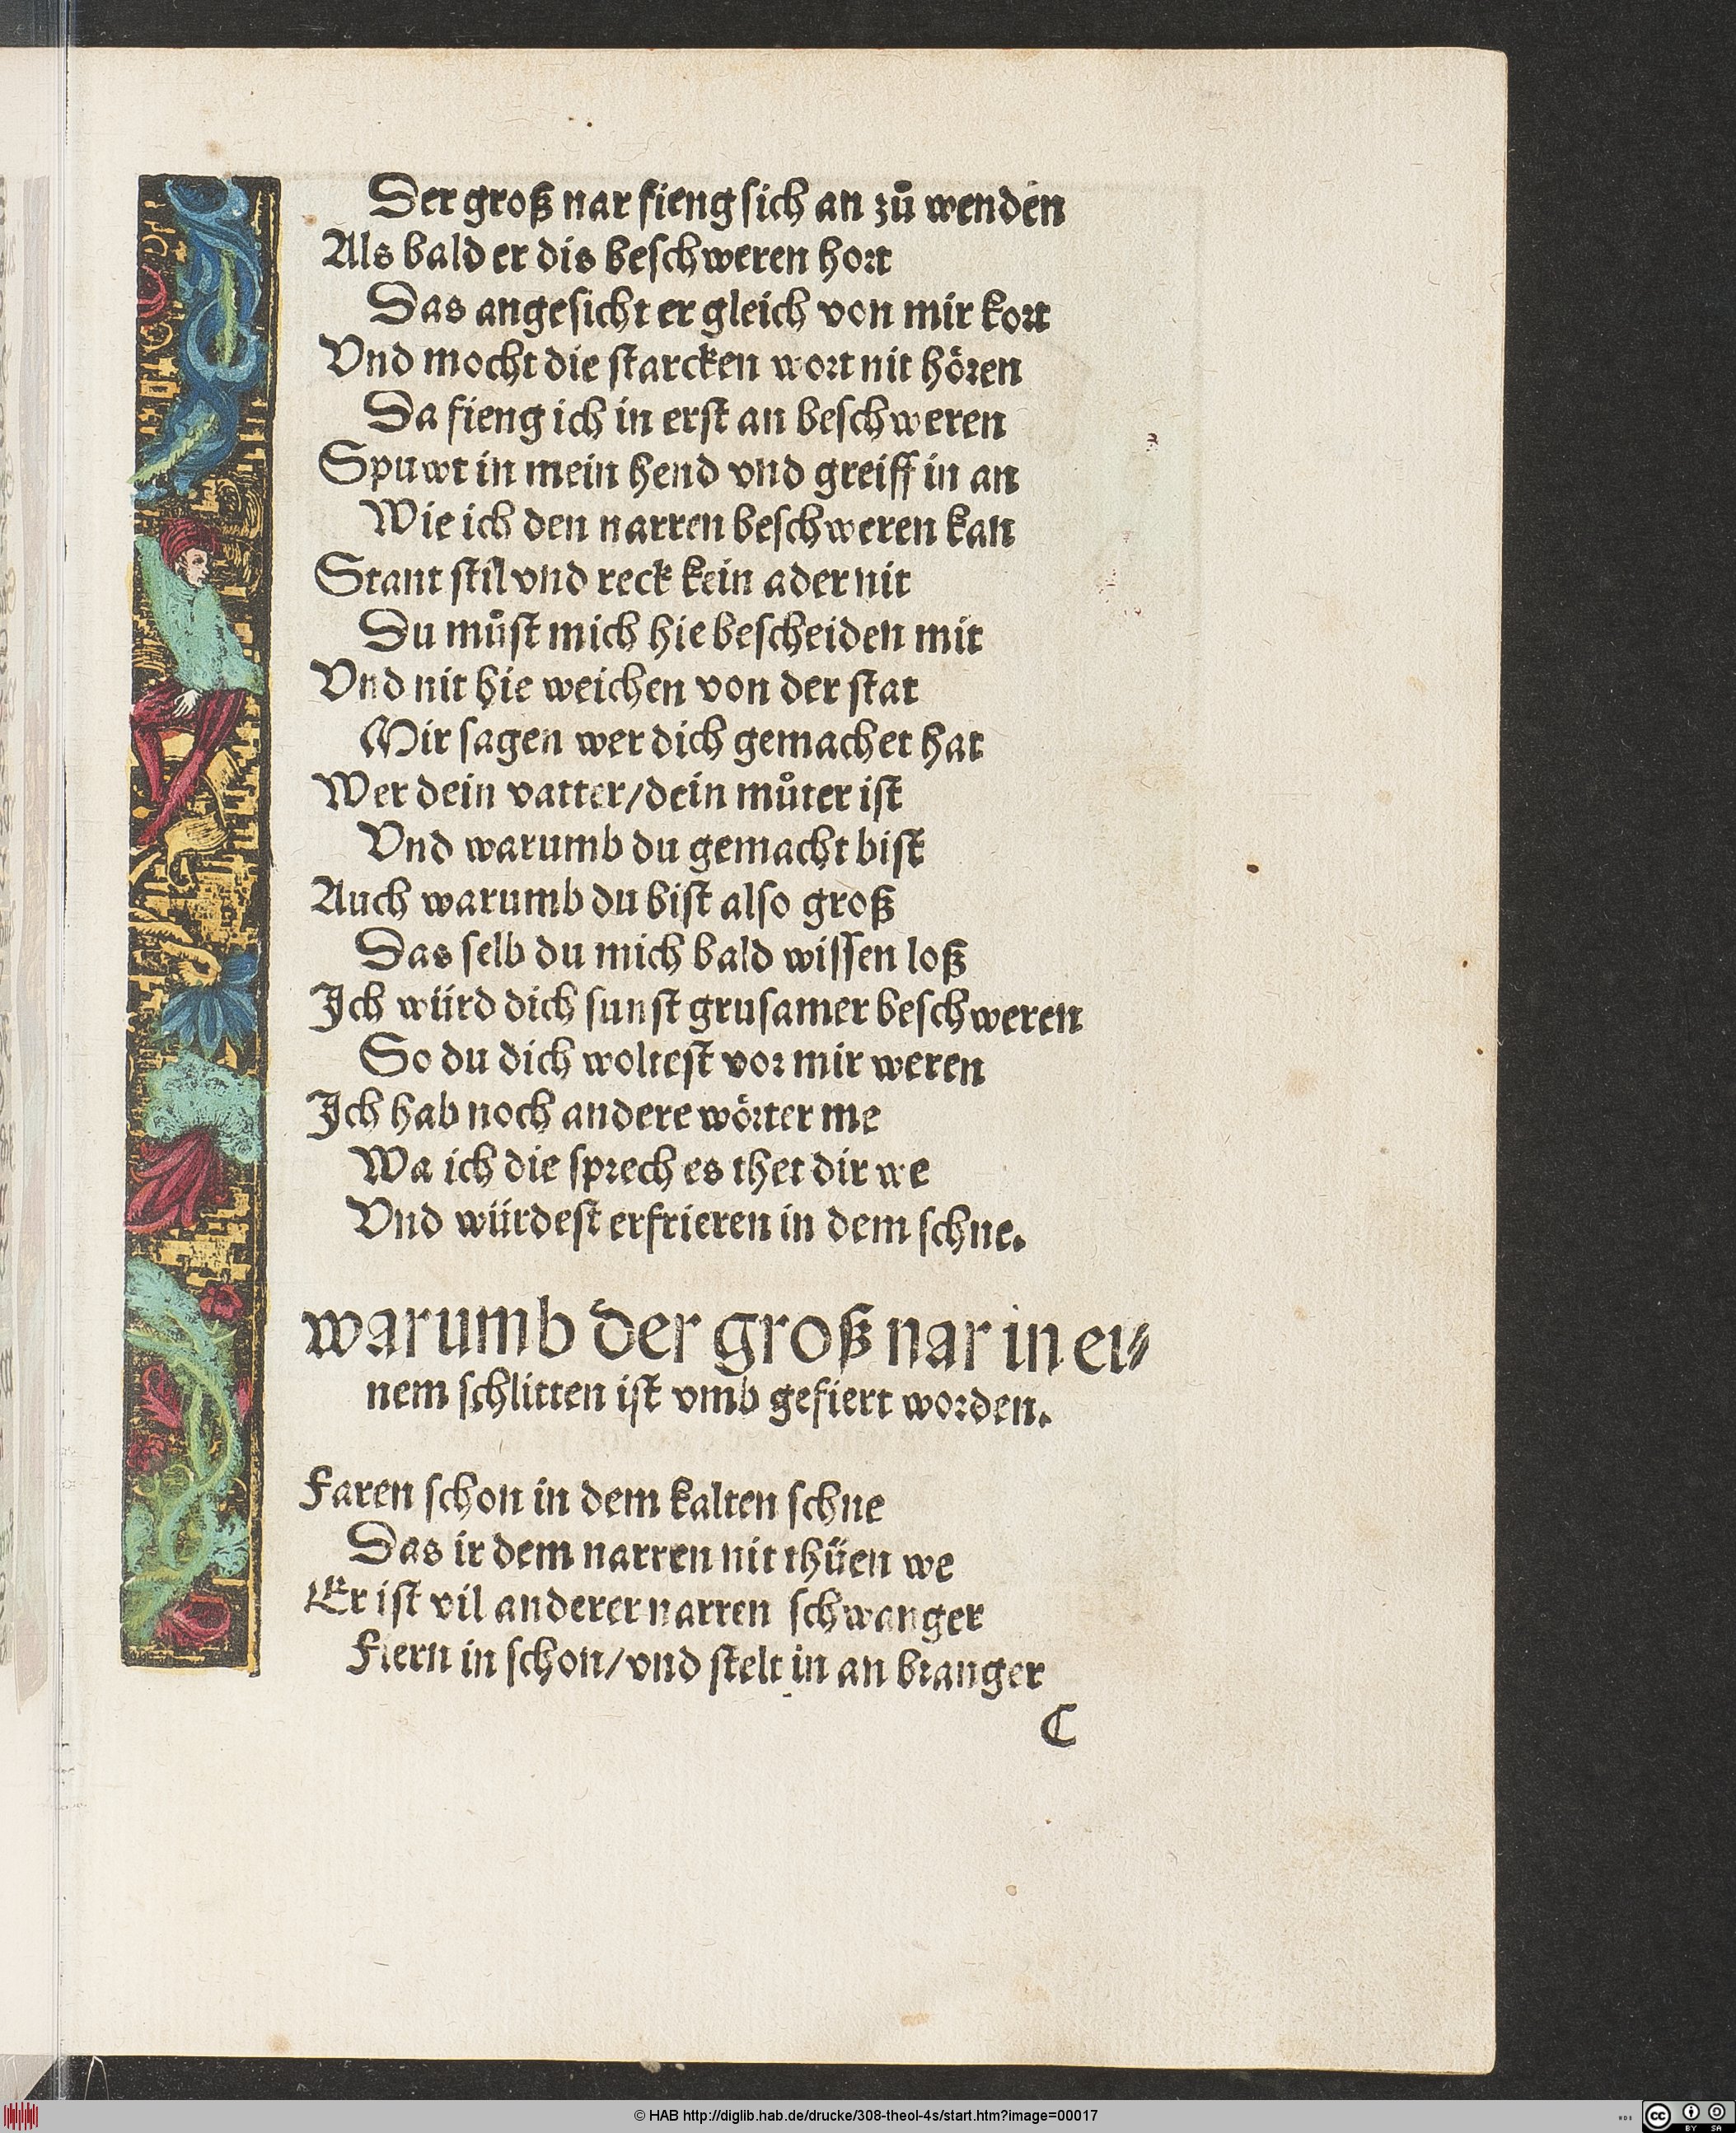 Der groß nar fieng sich an zů wenden
Als bald er dis beschweren hort
Das angesicht er gleich von mir kort
Vnd mocht die starcken wort nit hören
Da fieng ich in erst an beschweren
Spuwt in mein hend vnd greiff in an
Wie ich den narren beschweren kan
Stant stil vnd reck kein ader nit
Du můst mich hie bescheiden mit
Vnd nit hie weichen von der stat
Mir sagen wer dich gemachet hat
Wer dein vatter/dein můter ist
Vnd warumb du gemacht bist
Auch warumb du bist also groß
Das selb du mich bald wissen loß
Ich würd dich sunst grusamer beschweren
So du dich woltest vor mir weren
Ich hab noch andere wörter me
Wa ich die sprech es thet dir we
Vnd würdest erfrieren in dem schne.
warumb der groß nar in ei⸗
nem schlitten ist vmb gefiert worden.
Faren schon in dem kalten schne
Das ir dem narren nit thüen we
Er ist vil anderer narren schwanger
Fiern in schon/vnd stelt in an branger
C
© HAB http://diglib.hab.de/drucke/308-theol-4s/start.htm?image=00017
cc
BY SA